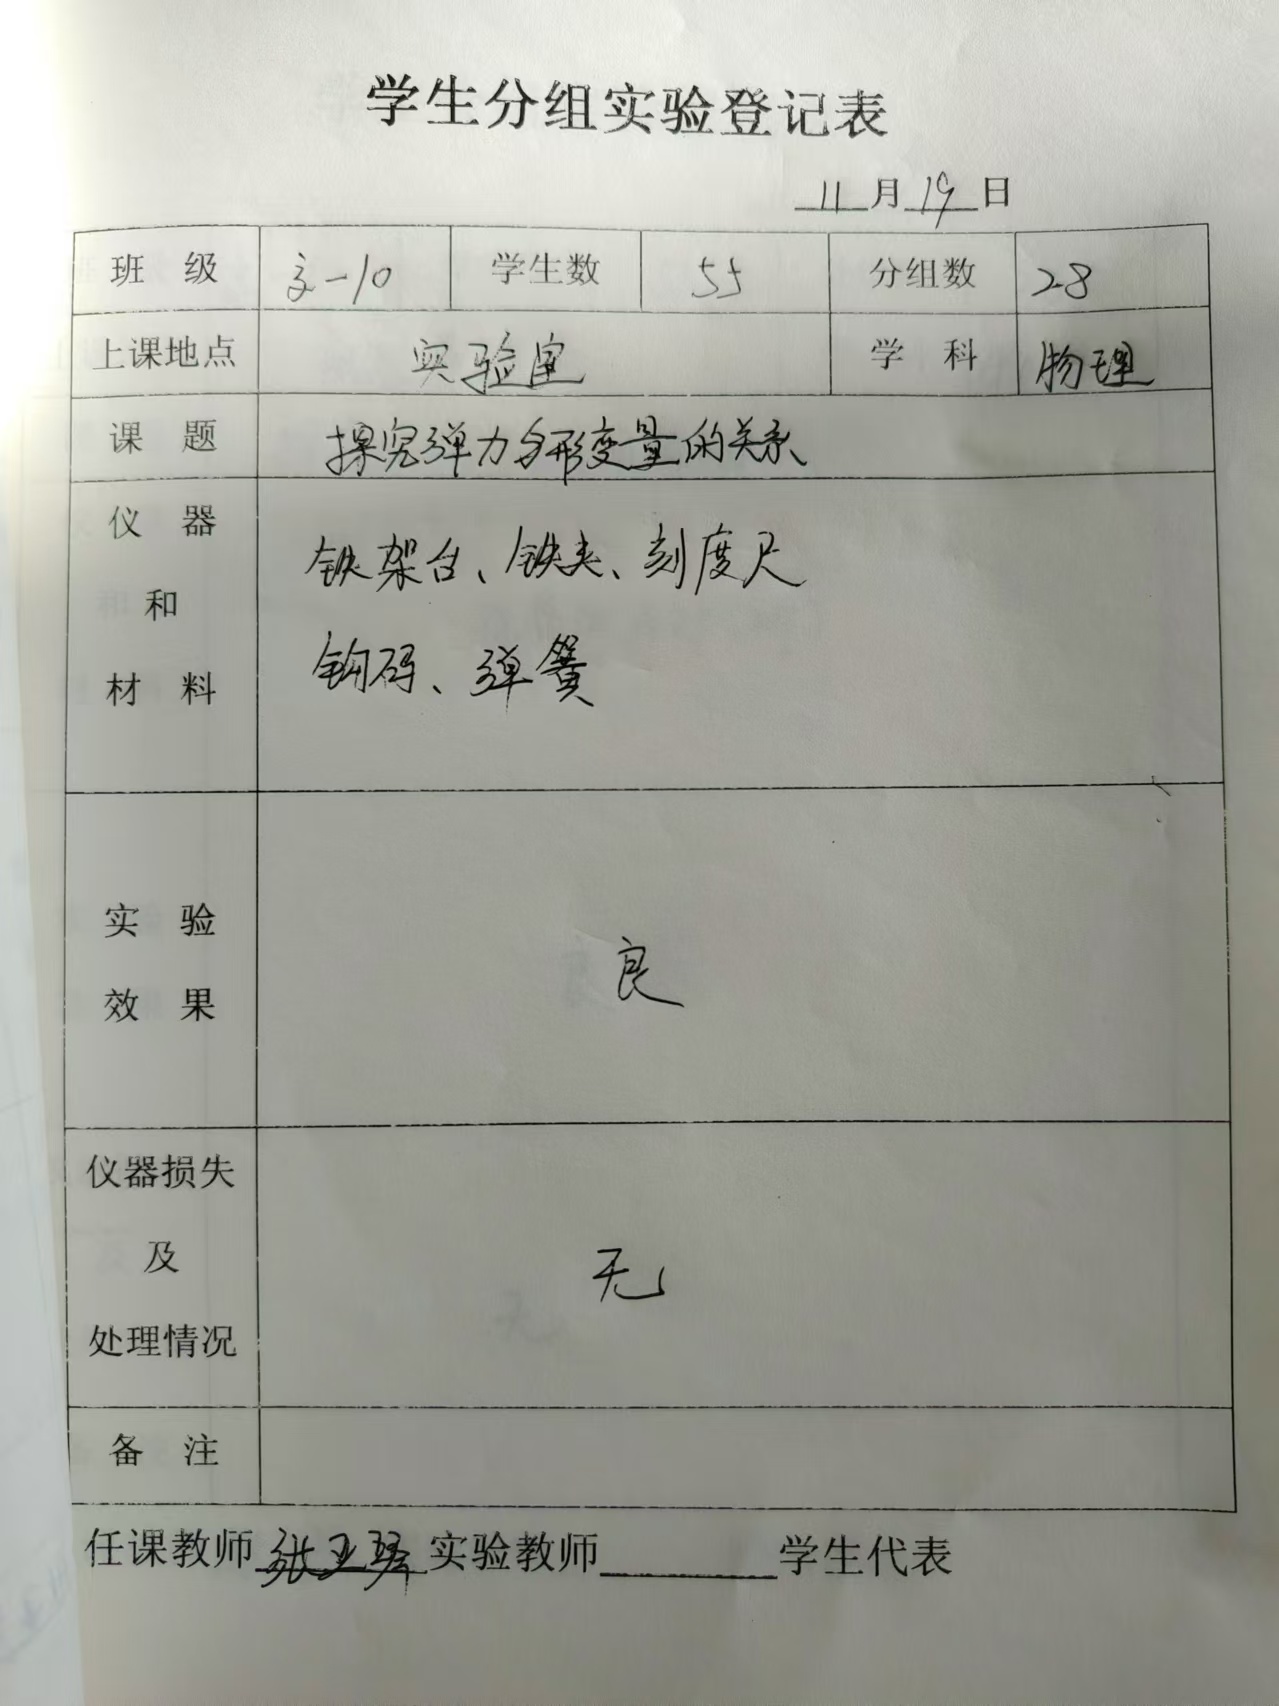 学生分组实验登记表
11月19日
班级 高一10 学生数 55 分组数 28
上课地点 实验室 学科 物理
课题 探究弹力与形变量的关系
仪器和材料 铁架台、铁夹、刻度尺
钩码、弹簧
实验效果 良
仪器损失及处理情况 无
备注
任课教师 张亚琴 实验教师 学生代表